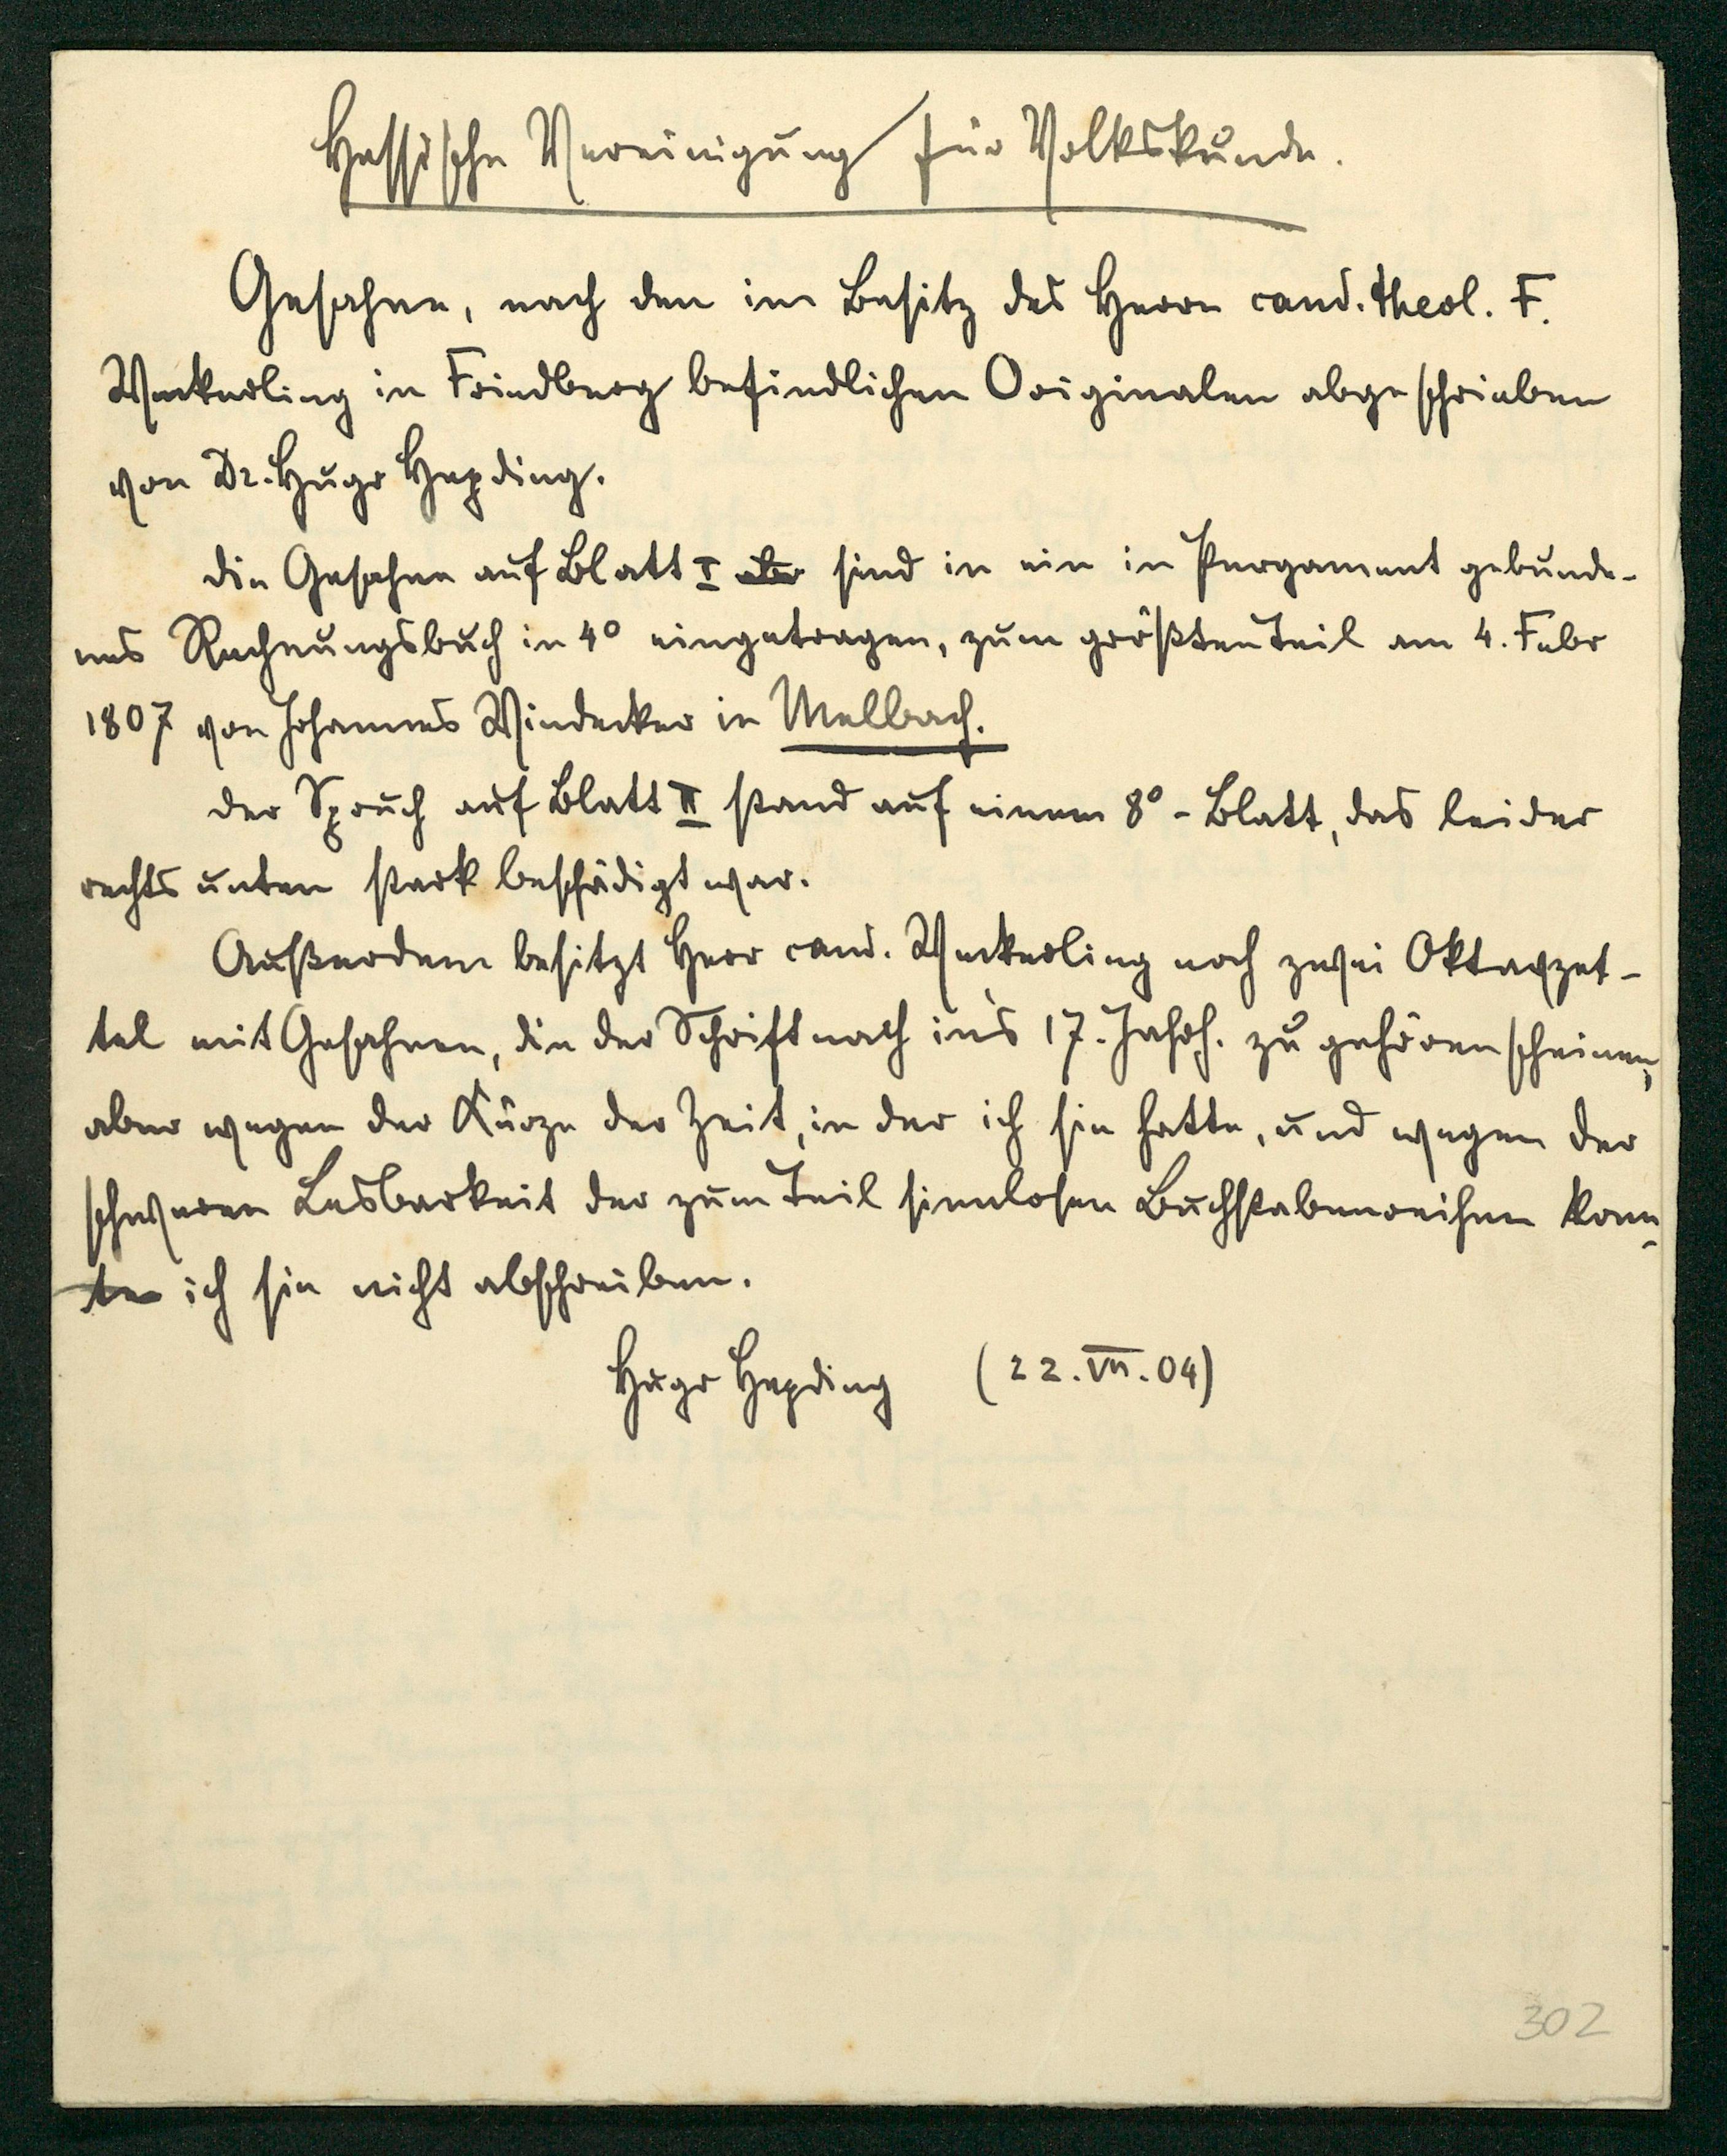 Hessische Vereinigung für Volkskunde.
Gesehne, nach den im Besitz des Herrn cand. theol. F.
Weckerling in Friedberg befindlichen Originalen abgeschrieben
von Dr. Hugo Hepding.
Die Gesehne auf Blatt I sind in ein in Pergament gebunde-
nes Rechnungsbuch in 4° eingetragen, zum größten Teil am 4. Febr
1807 von Johannes Windecker in Melbach.
Der Spruch auf Blatt II stand auf einem 8°-Blatt, das leider
rechts unten stark beschädigt war.
Außerdem besitzt Herr cand. Weckerling noch zwei Oktavzet-
tel mit Gesehnen, die der Schrift nach in's 17. Jahrh. zu gehören scheinen,
aber wegen der Kürze der Zeit, in der ich sie hatte, und wegen der
schweren Lesbarkeit der zum Teil sinnlosen Buchstabenreihen konn-
te ich sie nicht abschreiben.
Hugo Hepding (22.VII.04)
302